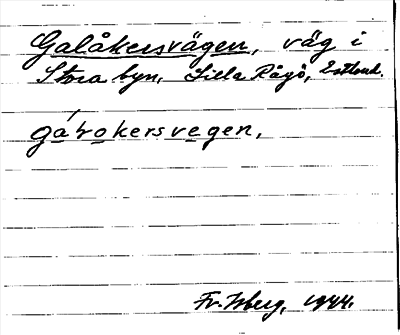 Galåkersvägen, väg i
Stora byn, Lilla Rågö, Estland.
gálrokersvegen,
Fr. Isberg, 1944.